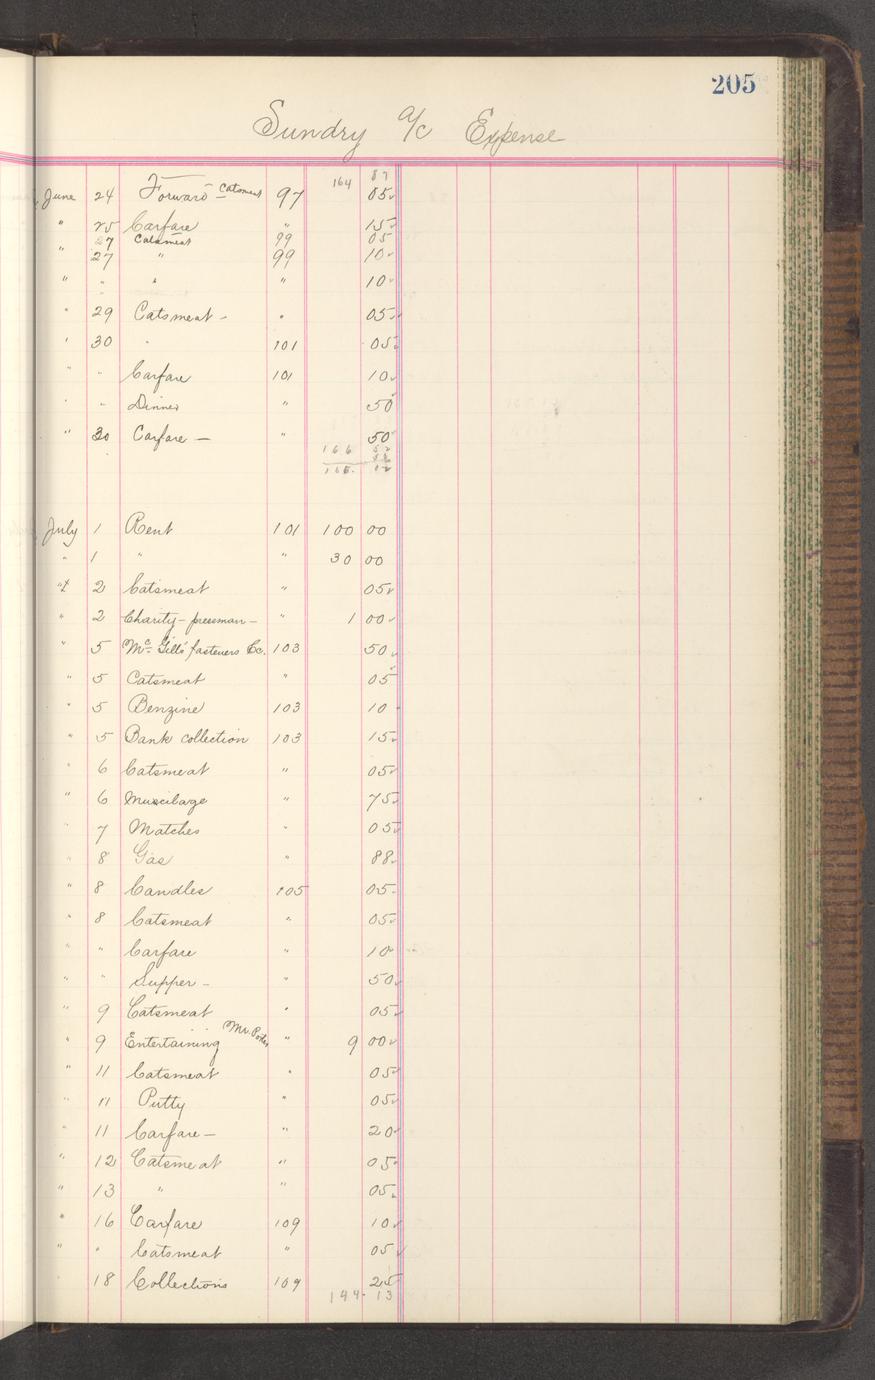 205
Sundry a/c Expense
164 87
June 24 Forward Catsmeat 97 05
" 25 Carfare " 15
27 Catsmeat 99 05
" 27 " 99 10
" " " " 10
" 29 Catsmeat - " 05
" 30 " 101 05
" " Carfare 101 10
" " Dinner " 50
" 30 Carfare — " 50
166 52
165. 02
July 1 Rent 101 100 00
" 1 " " 30 00
" 2 Catsmeat " 05
" 2 Charity - pressman - " 1 00
" 5 Mc Gill's fasteners Co. 103 50
" 5 Catsmeat " 05
" 5 Benzine 103 10
" 5 Bank collection 103 15
" 6 Catsmeat " 05
" 6 Muscilage " 75
" 7 Matches " 05
" 8 Gas " 88
" 8 Candles 105 05
" 8 Catsmeat " 05
" " Carfare " 10
" " Supper - " 50
" 9 Catsmeat " 05
" 9 Entertaining Mr. " 9 00
" 11 Catsmeat " 05
" 11 Putty " 05
" 11 Carfare — " 20
" 12 Catsmeat " 05
" 13 " " 05
" 16 Carfare 109 10
" " Catsmeat " 05
" 18 Collections 109 25
144. 13